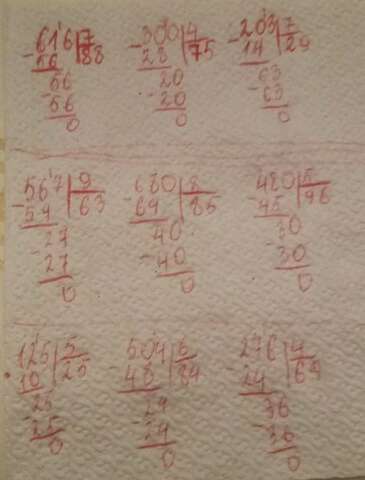 -616|7 -300|4 -203|7
56 88 28 75 14 29
56 20 63
-56 -20 -63
0 0 0
-567|9 -680|8 -480|5
54 63 64 85 45 96
27 40 30
-27 -40 -30
0 0 0
-125|5 -504|6 -276|4
10 25 48 84 24 69
25 24 36
-25 -24 -36
0 0 0